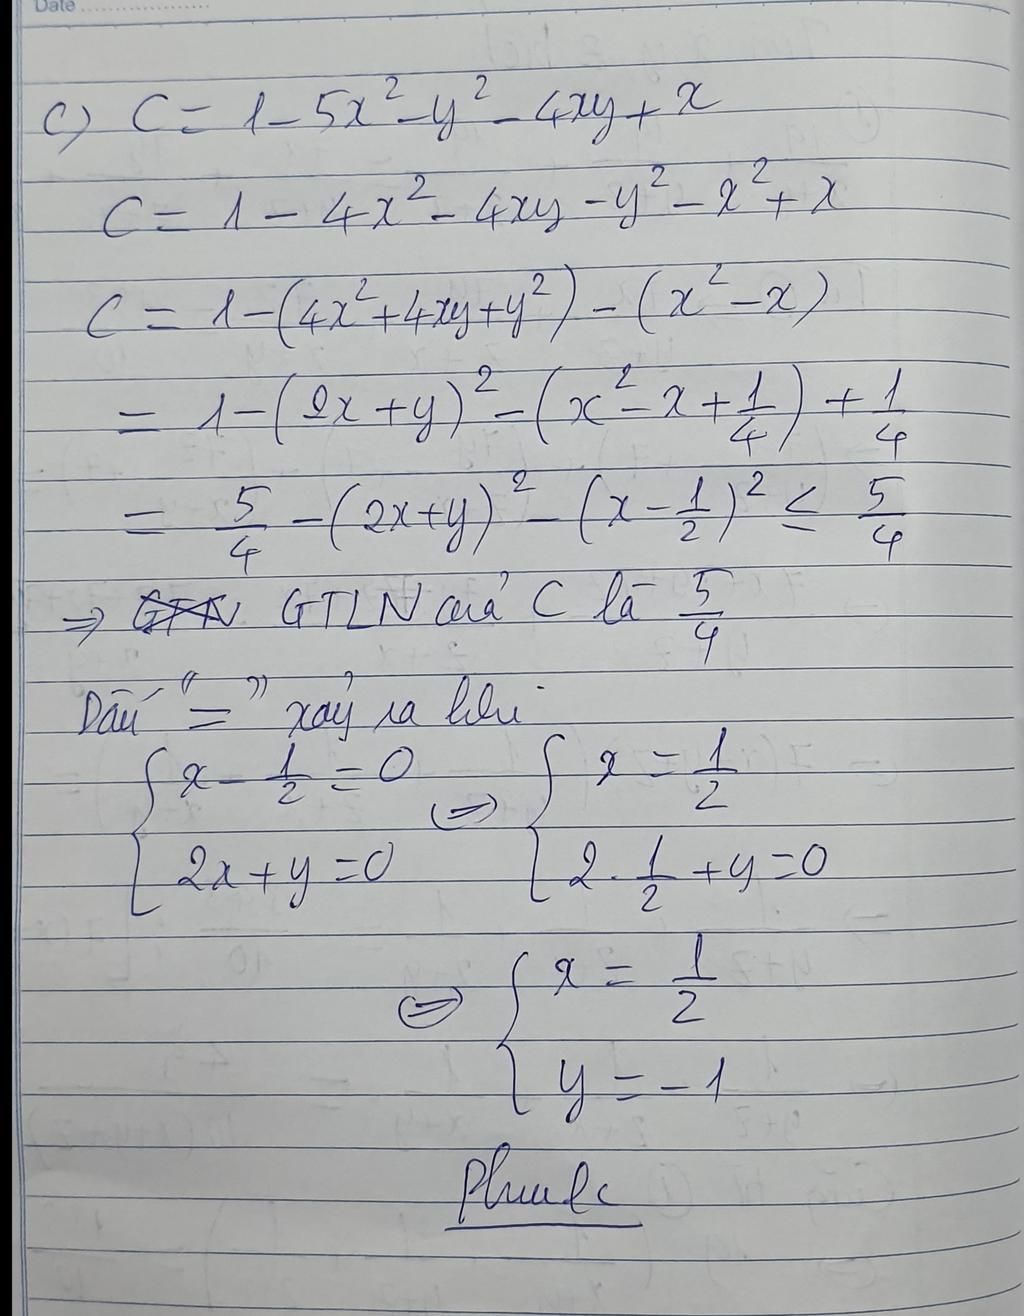 Date
c) C = 1 - 5x² - y² - 4xy + x
C = 1 - 4x² - 4xy - y² - x² + x
C = 1 - (4x² + 4xy + y²) - (x² - x)
= 1 - (2x + y)² - (x² - x + 1/4) + 1/4
= 5/4 - (2x + y)² - (x - 1/2)² ≤ 5/4
⇒ GTLN của C là 5/4
Dấu "=" xảy ra khi
{ x - 1/2 = 0 ⇔ { x = 1/2
2x + y = 0 2 . 1/2 + y = 0
⇔ { x = 1/2
y = -1